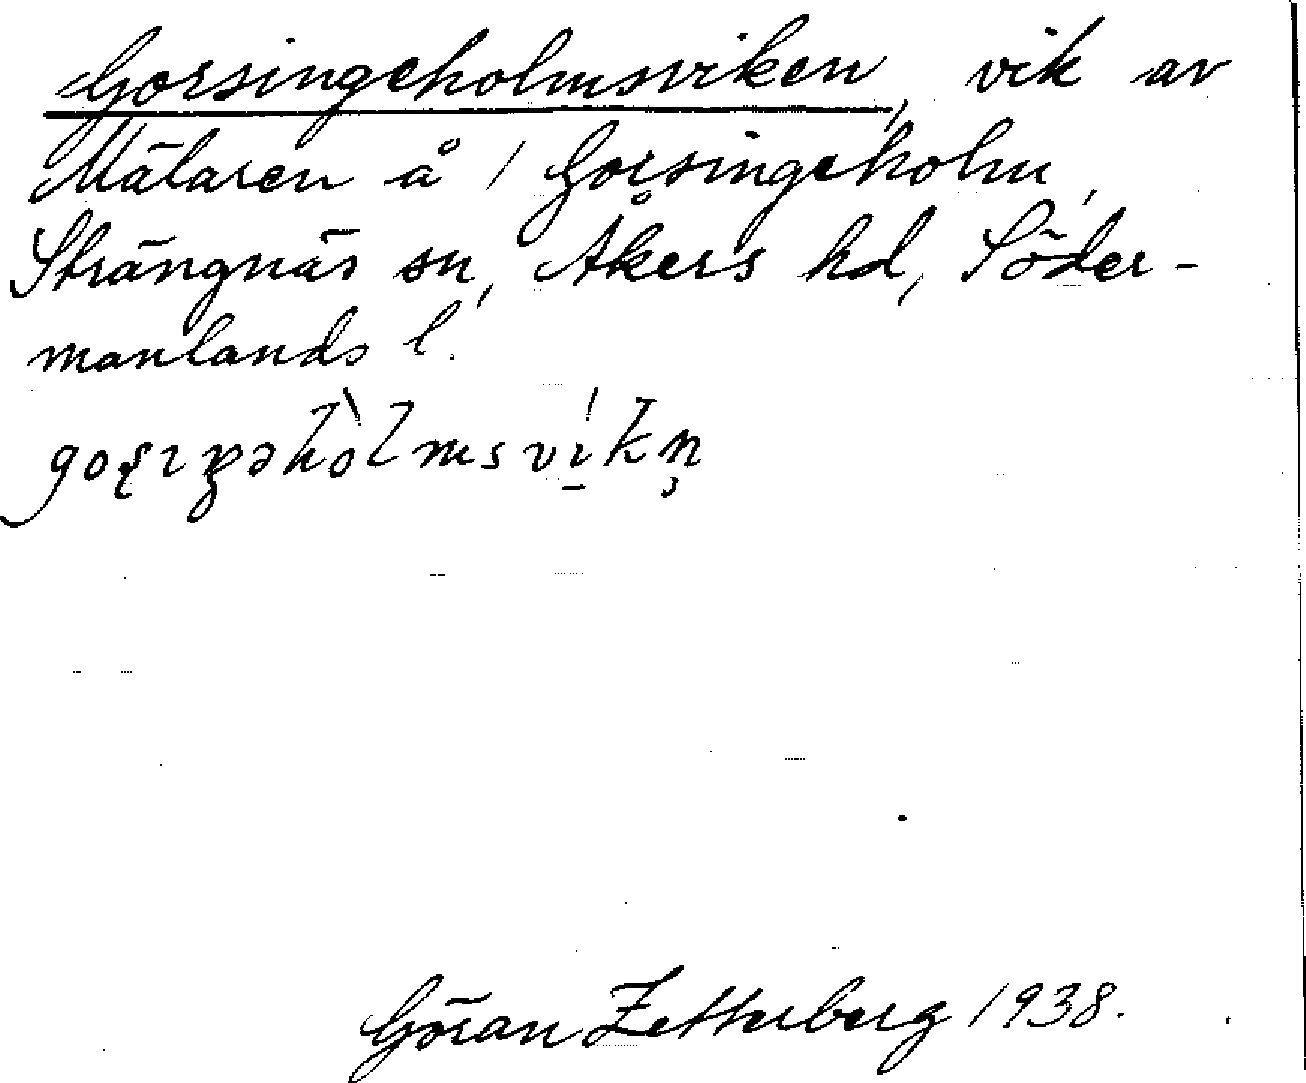 Gorsingeholmsviken, vik av
Mälaren å 1 Gorsingeholm,
Strängnäs sn, Åkers hd, Söder-
manlands l.
Göran Zetterberg 1938.